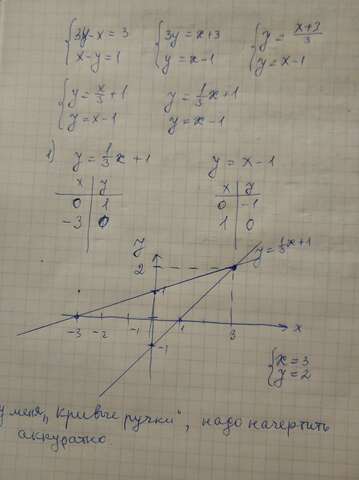 {3y-x=3 {3y=x+3 {y=x+3/3
{x-y=1 {y=x-1 {y=x-1
{y=x/3+1 y=1/3x+1
{y=x-1 y=x-1
1) y=1/3x+1 y=x-1
x | y x | y
0 | 1 0 | -1
-3 | 0 1 | 0
y
2 y=1/3x+1
1
-3 -2 -1 1 3 x
-1
{x=3
{y=2
у меня "кривые ручки", надо начертить
аккуратно